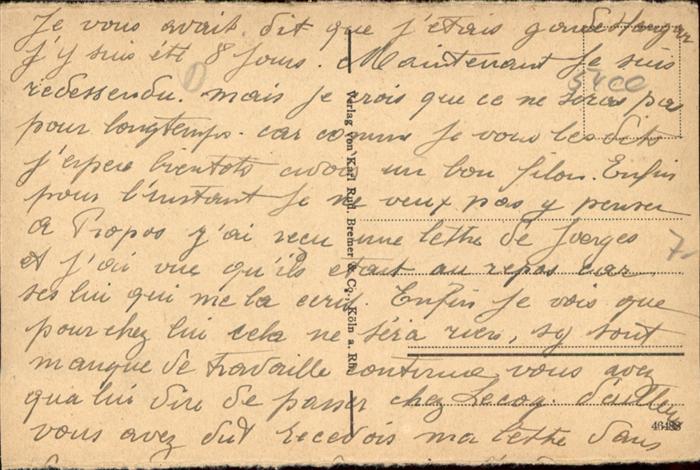 Je vous avait dit que j'étais garde
j'y suis été 8 jours. Maintenant je suis
redessendu. mais je crois que ce ne seras pas
pour longtemps. car comme je vous les dits
j'espere bientots avoir un bon filon. Enfin
pour l'instant je ne veux pas y penser
A Propos j'ai recu une lettre de Jorges
et j'ai vue qu'ils etait au repos car
ses lui qui me la ecrit. Enfin je vois que
pour chez lui cela ne séra rien, sy sont
manque de travaille continue vous avez
qua lui dire de passer chez Lecoq. d'ailleurs
vous avez dut recevois ma lettre dans
Verlag von Karl Rud. Bremer & Co., Köln a. Rh.
5400
7-
46488